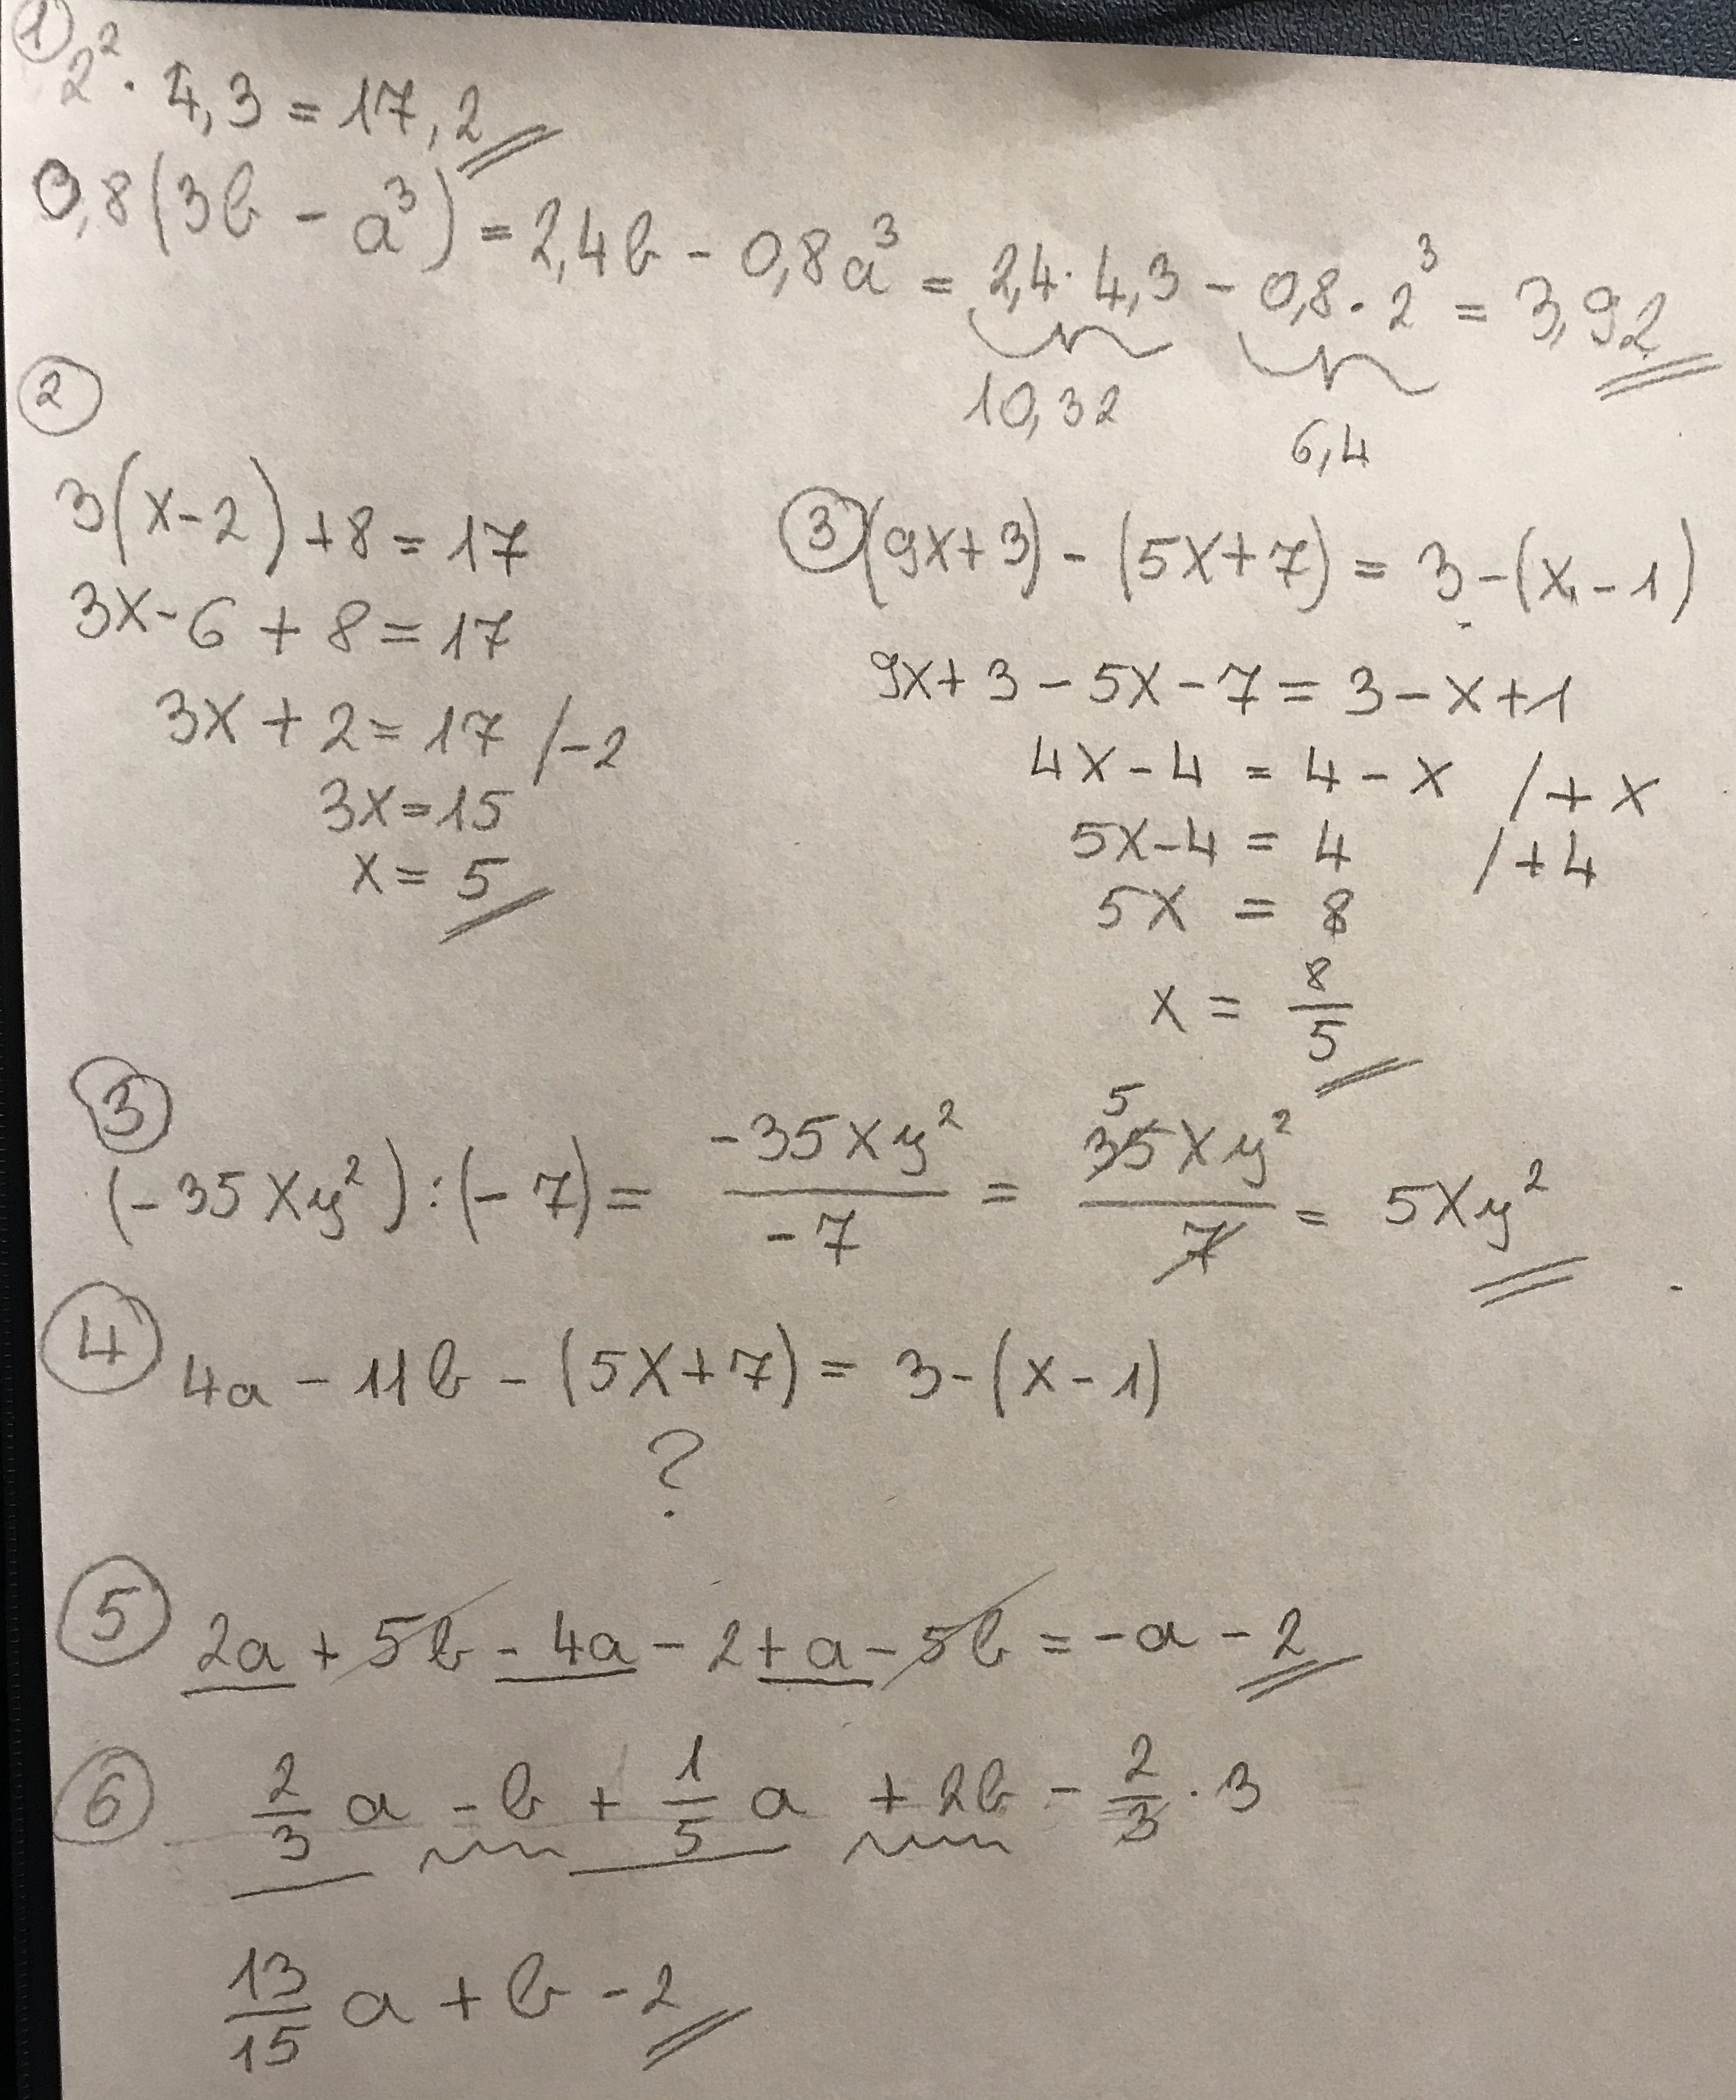 ①
2² · 4,3 = 17,2
0,8(3b - a³) = 2,4b - 0,8a³ = 2,4 · 4,3 - 0,8 · 2³ = 3,92
10,32
6,4
②
3(x-2) + 8 = 17
3x - 6 + 8 = 17
3x + 2 = 17 /-2
3x = 15
x = 5
③ (9x+3) - (5x+7) = 3 - (x - 1)
9x + 3 - 5x - 7 = 3 - x + 1
4x - 4 = 4 - x /+x
5x - 4 = 4 /+4
5x = 8
x = 8/5
③
(-35xy²) : (-7) = -35xy²/-7 = 5 35xy²/7 = 5xy²
④ 4a - 11b - (5x+7) = 3 - (x - 1)
?
⑤ 2a + 5b - 4a - 2 + a - 5b = -a - 2
⑥ 2/3 a - b + 1/5 a + 2b - 2/3 · 3
13/15 a + b - 2